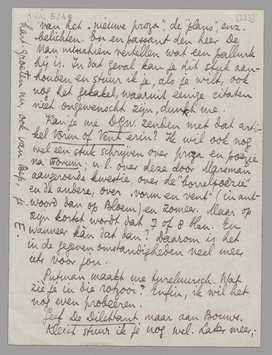 van het „nieuwe proza", de „plans", enz.
belichten. En en passant den heer De
Man misschien vertellen wat een fallurk
hij is. In dat geval kan je dit stuk aan-
houden en stuur ik je, als je wilt, ook
nog het gekakel, waaruit eenige citaten
niet ongewenscht zijn, dunkt me.
Kan je me D.G.W. zenden met dat arti-
kel Vorm of Vent erin? Ik wil ook nog
wel een stuk schrijven over proza en poëzie
na Forum: n.l. over deze door Marsman
aangeroerde kwestie, over de
en de andere, over „vorm en vent" (in ant-
woord dan op Bloem) en zoo meer. Maar op
zijn kortst wordt dat 7 of 8 blz. En
wanneer kan dat dan? Daarom is het
in de gegeven omstandigheden veel meer
iets voor jou.
Putman maakt me tureluursch. Wat
zie je in die rotzooi? Enfin, ik wil het
nog even probeeren.
Geef De Dilettant maar aan Bouws.
Kleist stuur ik je nog wel. Later meer;
hart. groeten en, ook van Bep, je
E.